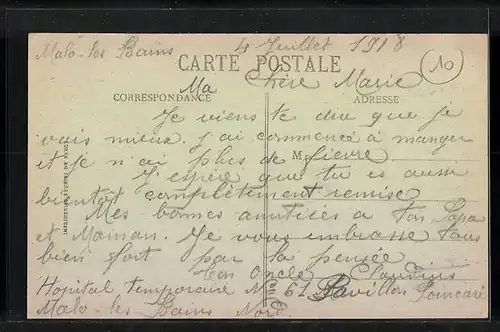 Malo-les Bains 4 Juillet 1918
10
CARTE POSTALE
Ma Chère Marie
CORRESPONDANCE ADRESSE
Je viens te dire que je
vais mieux. j'ai commencé à manger
et je n'ai plus de fievre
M
J'espère que tu es aussi
bientot complètement remise
Mes bonnes amitiées a ton Papa
et Maman. Je vous embrasse tous
bien fort par la pensée
ton Oncle Claudius
Hopital temporaire No 61 Pavillon Poincaré
Malo-les Bains Nord